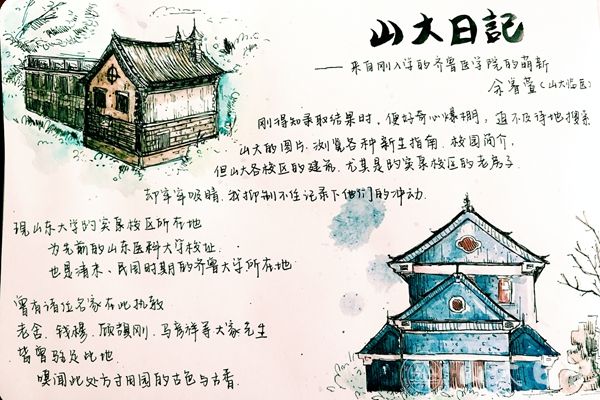 山大日記
——来自刚入学的齐鲁医学院的萌新
(山大临医)
刚得知录取结果时，便好奇心爆棚，迫不及待地搜索
山大的图片，浏览各种新生指南、校园简介，
但山大各校区的建筑，尤其是的实某校区的老房子
却牢牢吸睛，我抑制不住记录下他们的冲动.
现山东大学的实某校区所在地
为先前的山东医科大学校址.
也是清末、民国时期的齐鲁大学所在地
曾有诸位名家在此执教
老舍、钱穆、顾颉刚、马彦祥等大家先生
皆曾驻足此地.
嗅闻此处方寸田园的古色与古香.